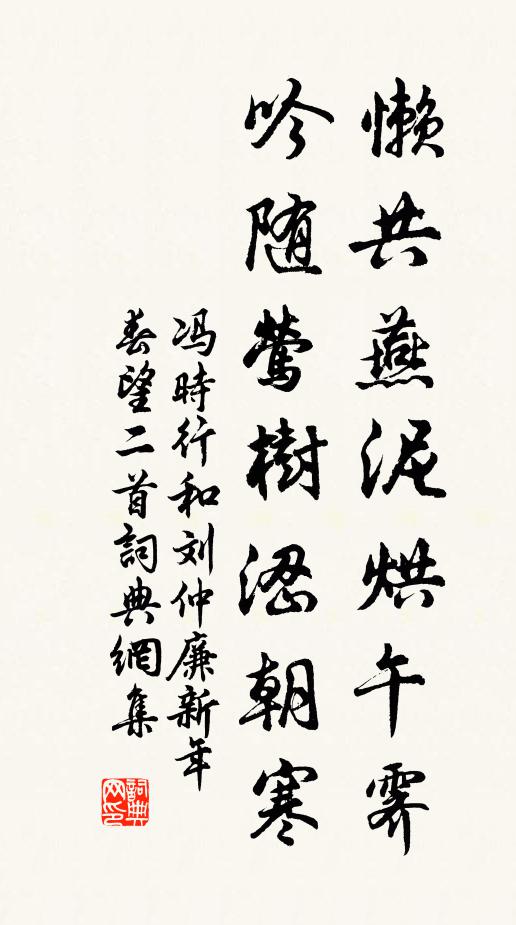 懒共燕泥烘午霁
吟随莺樹涩朝寒
冯時行和刘仲廉新年
春望二首詞典網集
詞典
网印